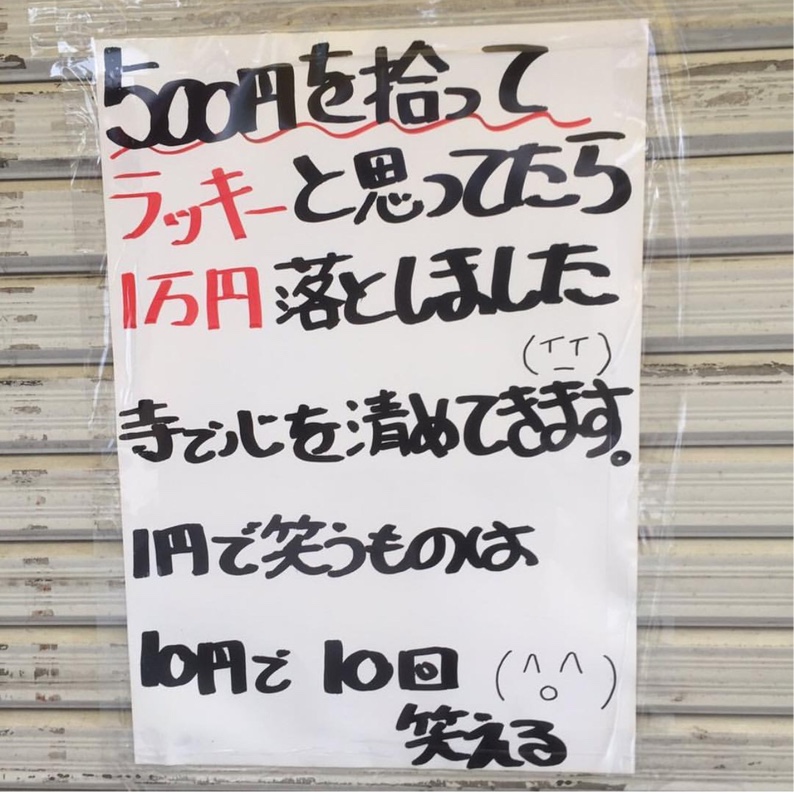 500円を拾って
ラッキーと思ってたら
1万円落としました
(TT)
寺で心を清めてきます。
1円で笑うものは
10円で10回(^o^)
笑える